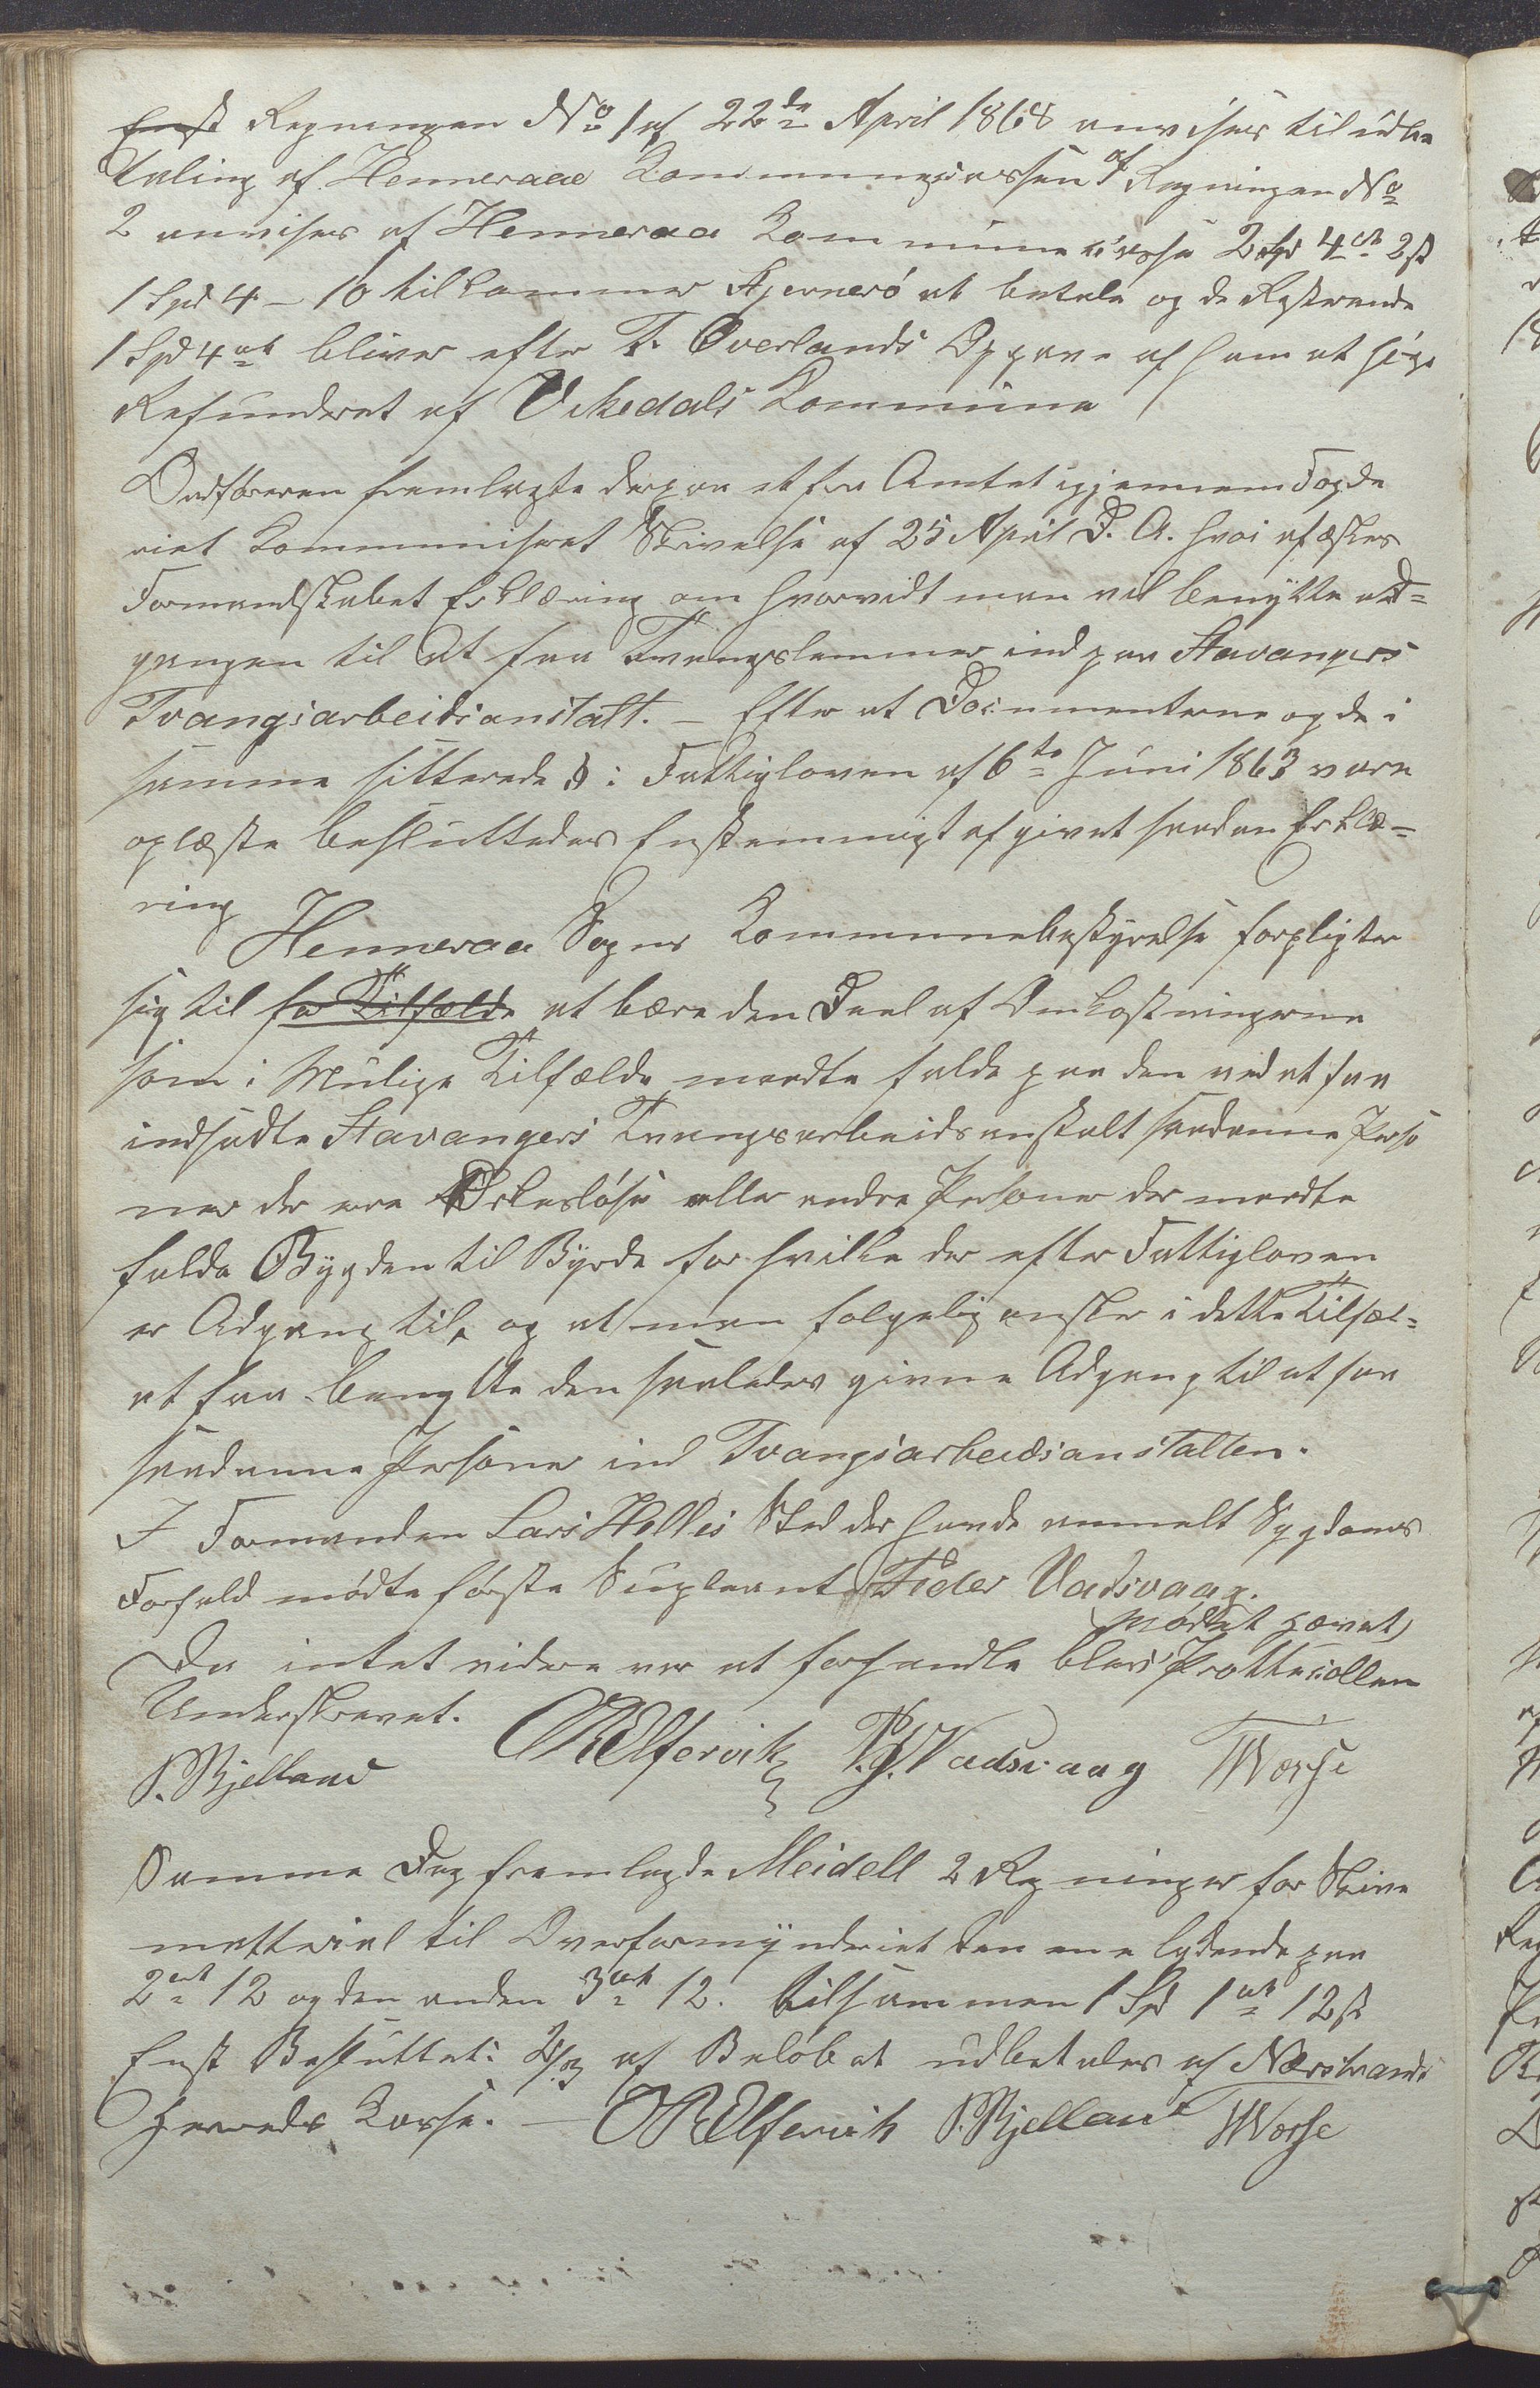 Enst Regningen No 1 af 22de April 1868 anvises til udbe
taling af Henneraae Kommunecassen af Regningen No
2 anvises af Henneraa Kommunecasse 2 Spd 4 ort 2 ß
1 Spd 4 - 10 tilkommer Hjernerö at betale og de Resterende
1 Spd 4 ort bliver efter T. Överlands Opgave af ham at söge
Refunderet af Vikedals Kommune
Ordföreren fremlagte derpaa et fra Amtet igjennem Fogde
riet Kommuniseret Skrivelse af 25 April D. A. hvori afæskes
Formandskabet Erklæring om hvorvidt man vil benytte ad=
gangen til at faa Tvangslemmer ind paa Stavangers
Tvangsarbeidsanstalt. - Efter at Documenterne og de i
samme sitterede § i Fattigloven af 6te Juni 1863 vare
oplæste besluttedes Enstemmigt afgivet saadan Erklæ=
ring
Henneraa Sogns Kommunebestyrelse forpligter
sig til for Tilfælde at bære den Deel af Omkostningerne
som i Mulige Tilfælde maatte falde paa den ved at faa
indsadte Stavangers Tvangsarbeidsanstalt saadanne Perso
ner der ere Örkeslöse eller andre Personer der maatte
falde Bygden til Byrde for hvilke der efter Fattigloven
er Adgang til, og at man folgelig ønsker i dette Tilfæl=
at faa benytte den saaledes givne Adgang til at faa
saadanne Personer ind Tvangsarbeidsanstalten.
I Formanden Lars Helles Sted der havde anmelt Sygdoms
Forfald mödte förste Supleant Peder Vadsvaag.
mödet hævet
Da intet videre var at forhandle blev Prottocollen
Underskrevet.
P. Bjelland ORElfervik P. J. Vadsvaag TWorse
Samme Dag fremlagde Meidell 2 Regninger for Skrive
matterial til Overformynderiet den ene lydende paa
2 ort 12 og den anden 3 ort 12. tilsammen 1 Spd 1 ort 12 ß
Enst Besluttet: 2/3 af Belöbet udbetales af Nærstrands
Herreds Kasse. - ORElfervik P. Bjelland TWorse